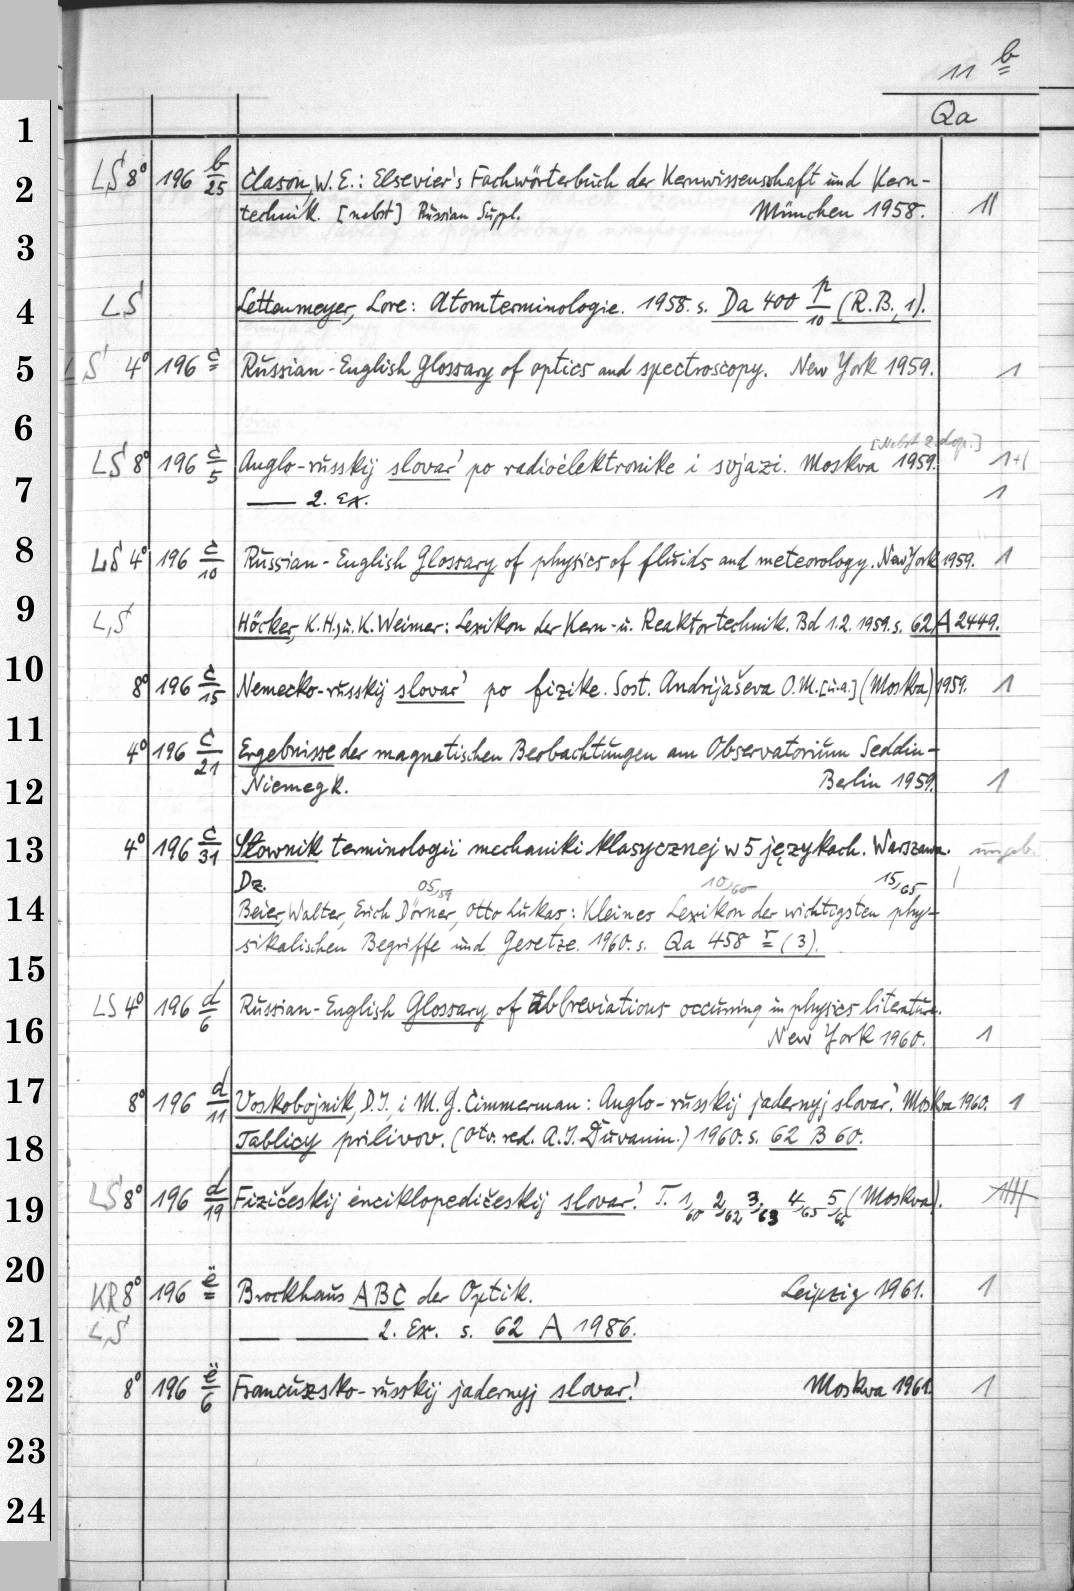 11 b
Qa
1
LS 8° 196 b/25 Clason, W. E.: Elsevier's Fachwörterbuch der Kernwissenschaft und Kern-
2
technik. [nebst] Russian Suppl. München 1958. 11
3
LS Lettenmeyer, Lore: Atomterminologie. 1958. s. Da 400 p/10 (R.B., 1).
4
LS 4° 196 c Russian-English Glossary of optics and spectroscopy. New York 1959. 1
5
6
[Nebst 2 dop.]
LS 8° 196 c/5 Anglo-russkij slovar' po radioėlektronike i svjazi. Moskva 1959. 1+1
7
—— 2. Ex. 1
8
LS 4° 196 c/10 Russian-English Glossary of physics of fluids and meteorology. New York 1959. 1
9
L,S Höcker, K. H., u. K. Weimer: Lexikon der Kern- u. Reaktortechnik. Bd 1.2. 1959. s. 62 A 2449.
10
8° 196 c/15 Nemecko-russkij slovar' po fizike. Sost. Andrijaševa O. M. [u.a.] (Moskva) 1959. 1
11
4° 196 c/21 Ergebnisse der magnetischen Beobachtungen am Observatorium Seddin-
12
Niemegk. Berlin 1959. 1
13
4° 196 c/31 Słownik terminologii mechaniki klasycznej w 5 językach. Warszawa. ungeb.
Dz. 05/59 10/60 15/65, 1
14
Beier, Walter, Erich Dörner, Otto Lukas: Kleines Lexikon der wichtigsten phy-
sikalischen Begriffe und Gesetze. 1960. s. Qa 458 r (3).
15
LS 4° 196 d/6 Russian-English Glossary of abbreviations occuring in physics literature.
16
New York 1960. 1
17
8° 196 d/11 Voskobojnik, D. I. i M. G. Cimmerman: Anglo-russkij jadernyj slovar'. Moskva 1960. 1
18
Tablicy prilivov. (Otv. red. A. I. Duvanin.) 1960. s. 62 B 60.
19
LS 8° 196 d/19 Fizičeskij ėnciklopedičeskij slovar'. T. 1/60 2/62 3/63 4/65 5/66 (Moskva).
20
KR 8° 196 ë Brockhaus ABC der Optik. Leipzig 1961. 1
21
L,S —— —— 2. Ex. s. 62 A 1986.
22
8° 196 ë/6 Francuzsko-russkij jadernyj slovar'. Moskva 1961. 1
23
24